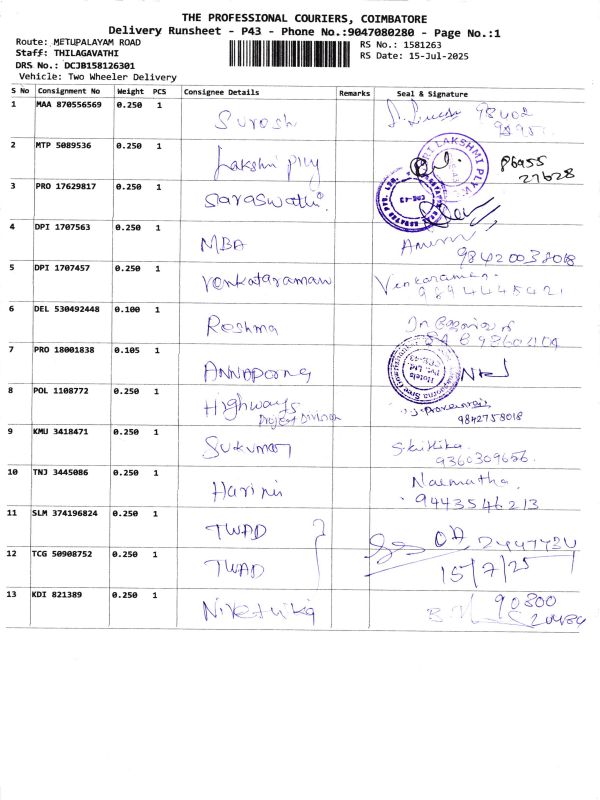 THE PROFESSIONAL COURIERS, COIMBATORE
Delivery Runsheet - P43 - Phone No.:9047080280 - Page No.:1
Route: METUPALAYAM ROAD
Staff: THILAGAVATHI
DRS No.: DCJB158126301
Vehicle: Two Wheeler Delivery
RS No.: 1581263
RS Date: 15-Jul-2025
S No Consignment No Weight PCS Consignee Details Remarks Seal & Signature
1 MAA 870556569 0.250 1 Suresh 98402
2 MTP 5089536 0.250 1 Lakshmi Ply LAKSHMI PLY 86955
27628
3 PRO 17629817 0.250 1 Saraswathi
4 DPI 1707563 0.250 1 MBA
9842003808
5 DPI 1707457 0.250 1 Venkataraman Venkataraman
9894445421
6 DEL 530492448 0.100 1 Reshma
7 PRO 18001838 0.105 1 ANNAPORNA
8 POL 1108772 0.250 1 Highways
Project Division
9842758018
9 KMU 3418471 0.250 1 Sukumar
9360309656
10 TNJ 3445086 0.250 1 Harini
9443546213
11 SLM 374196824 0.250 1 TWAD
12 TCG 50908752 0.250 1 TWAD 15/7/25
13 KDI 821389 0.250 1 90800
20484